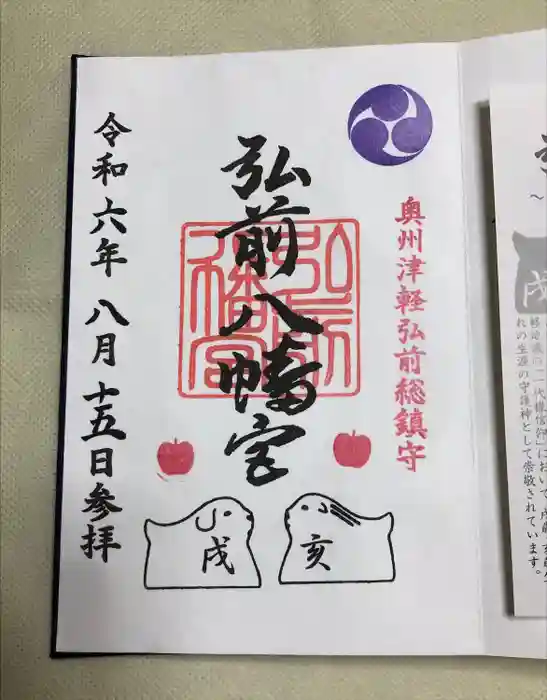 奥州津軽弘前総鎮守
弘前八幡宮
弘前八幡宮
令和六年八月十五日参拝
戌
亥
戌
れの生涯の守護神として崇敬されています。